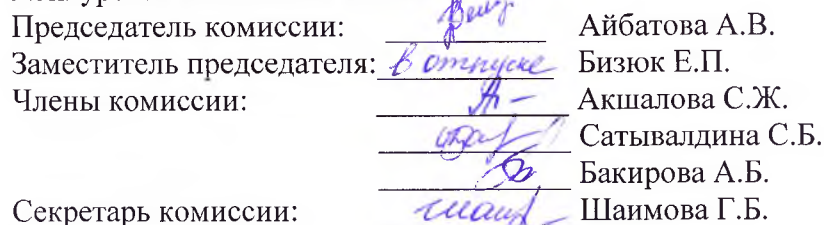 Председатель комиссии: Айбатова А.В.
Заместитель председателя: в отпуске Бизюк Е.П.
Члены комиссии: Акшалова С.Ж.
Сатывалдина С.Б.
Бакирова А.Б.
Секретарь комиссии: Шаимова Г.Б.